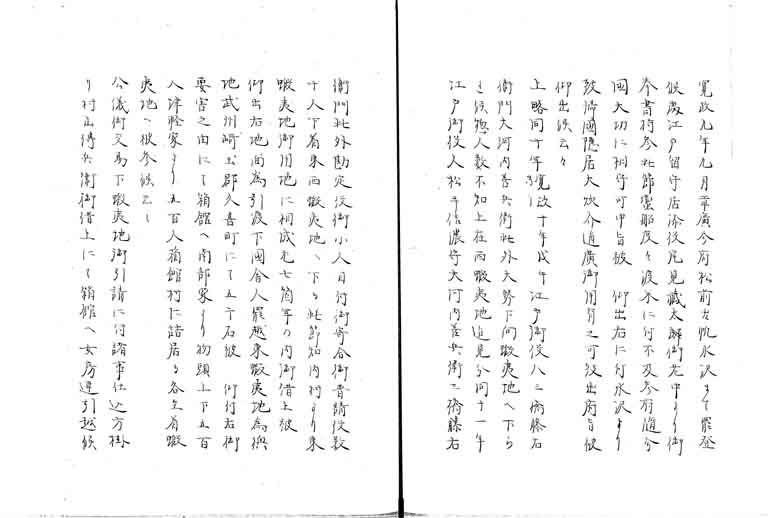 寛政九年九月章廣今府松前出帆水沢まて罷登
候處江戸留守居添役尾見蔵太郎御老中より御
奉書持参此節蛮船度々渡来に付不及参府随分
国大切に相守可申旨被 仰出右に付水沢より
致帰國隠居大炊介道廣御用有之可致出府旨被
仰出候云々
上略同十年寛政十年戊午江戸御役人三橋藤右
衛門大河内善兵衛此外大勢下向蝦夷地へ下ら
る候惣人数不知上在西蝦夷地迄見分同十一年
江戸御役人松平信濃守大河内善兵衛三橋藤右
衛門此外勘定役御小人目付御寄合御普請役数
十人下着東西蝦夷地へ下る此節知内村より東
蝦夷地御用地に相成尤七箇年の内御借上被
仰出右地面為引渡下國舎人罷越東蝦夷地為換
地武州崎玉郡久喜町にて五千石被 仰付右御
要害之由にて箱館へ南部家より物頭上下五百
人津軽家より五百人箱館村に詰居る各生着蝦
夷地へ被参候云々
公儀御文易下蝦夷地御引請に付諸事仕込方掛
り村山傳兵衛御借上にて箱館へ女房連引越候